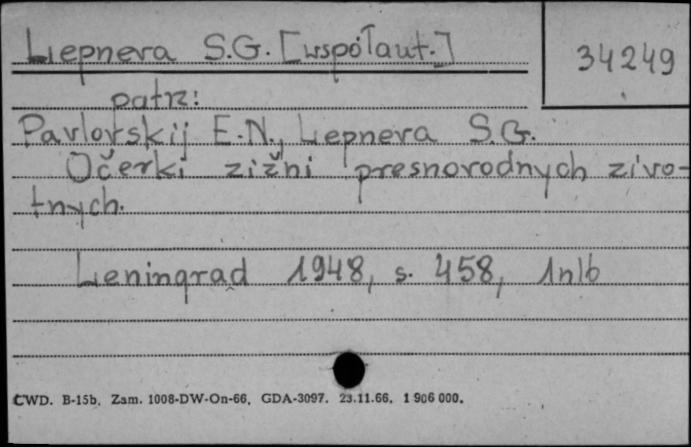 Lepneva S.G. [współaut.]
34249
patrz:
Pavlovskij E.N., Lepneva S.G.
Očerki zižni presnovodnych živo-
tnych.
Leningrad 1948, s. 458, 1nlb
CWD. B-15b. Zam. 1008-DW-On-66. GDA-3097. 23.11.66. 1 906 000.